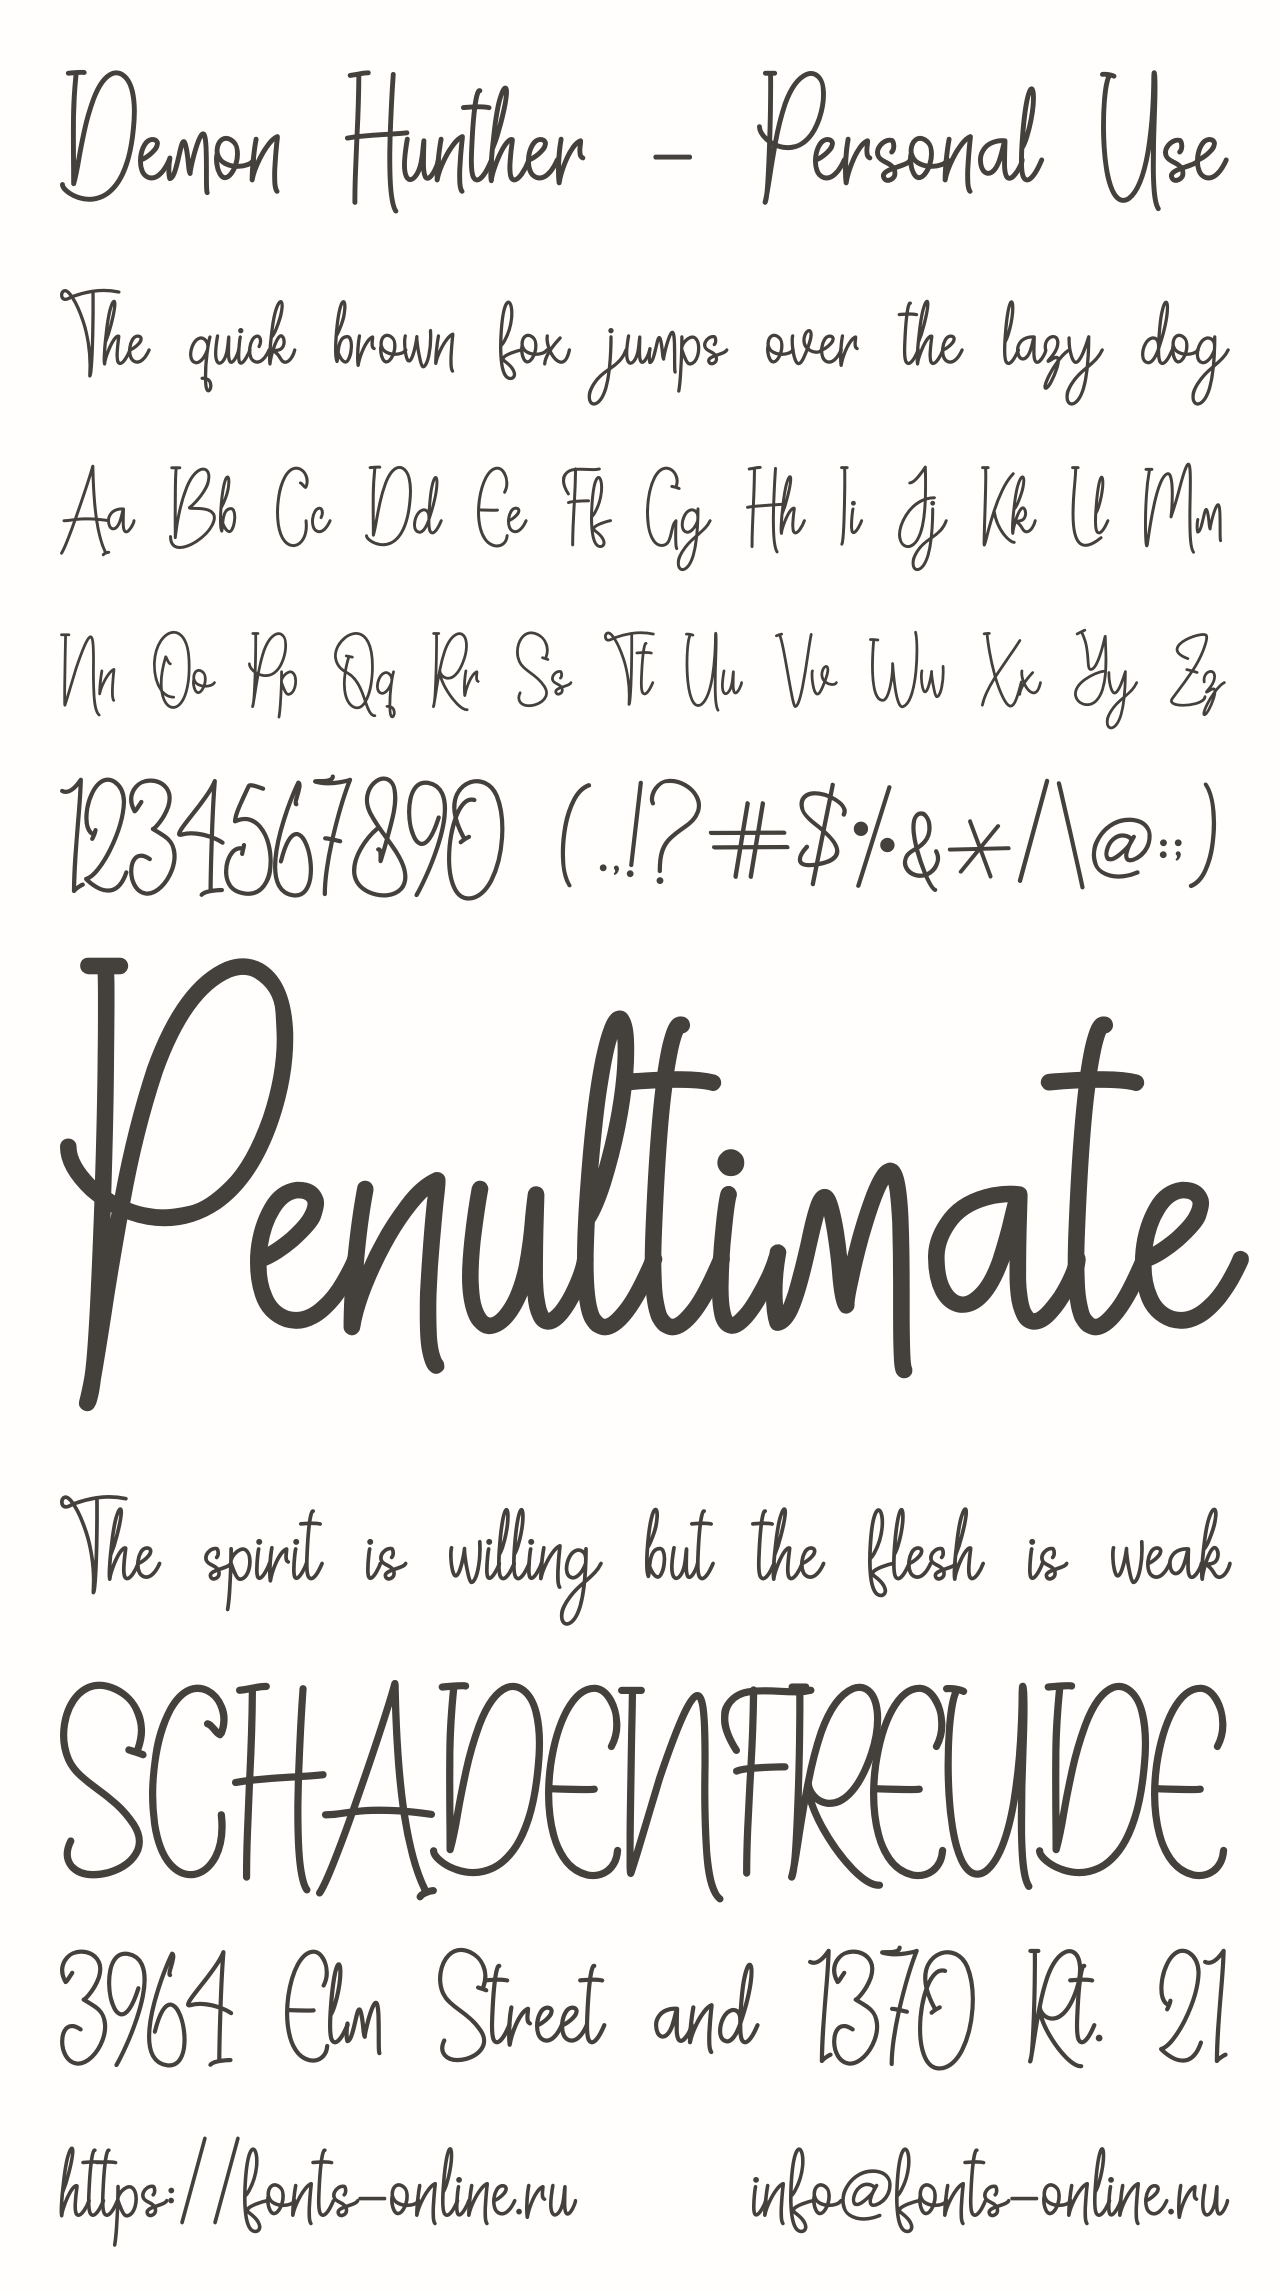 Demon Hunther - Personal Use
The quick brown fox jumps over the lazy dog
Aa Bb Cc Dd Ee Ff Gg Hh Ii Jj Kk Ll Mm
Nn Oo Pp Qq Rr Ss Tt Uu Vv Ww Xx Yy Zz
1234567890 (.,!?#$%&*/\@:;)
Penultimate
The spirit is willing but the flesh is weak
SCHADENFREUDE
3964 Elm Street and 1370 Rt. 21
https://fonts-online.ru info@fonts-online.ru